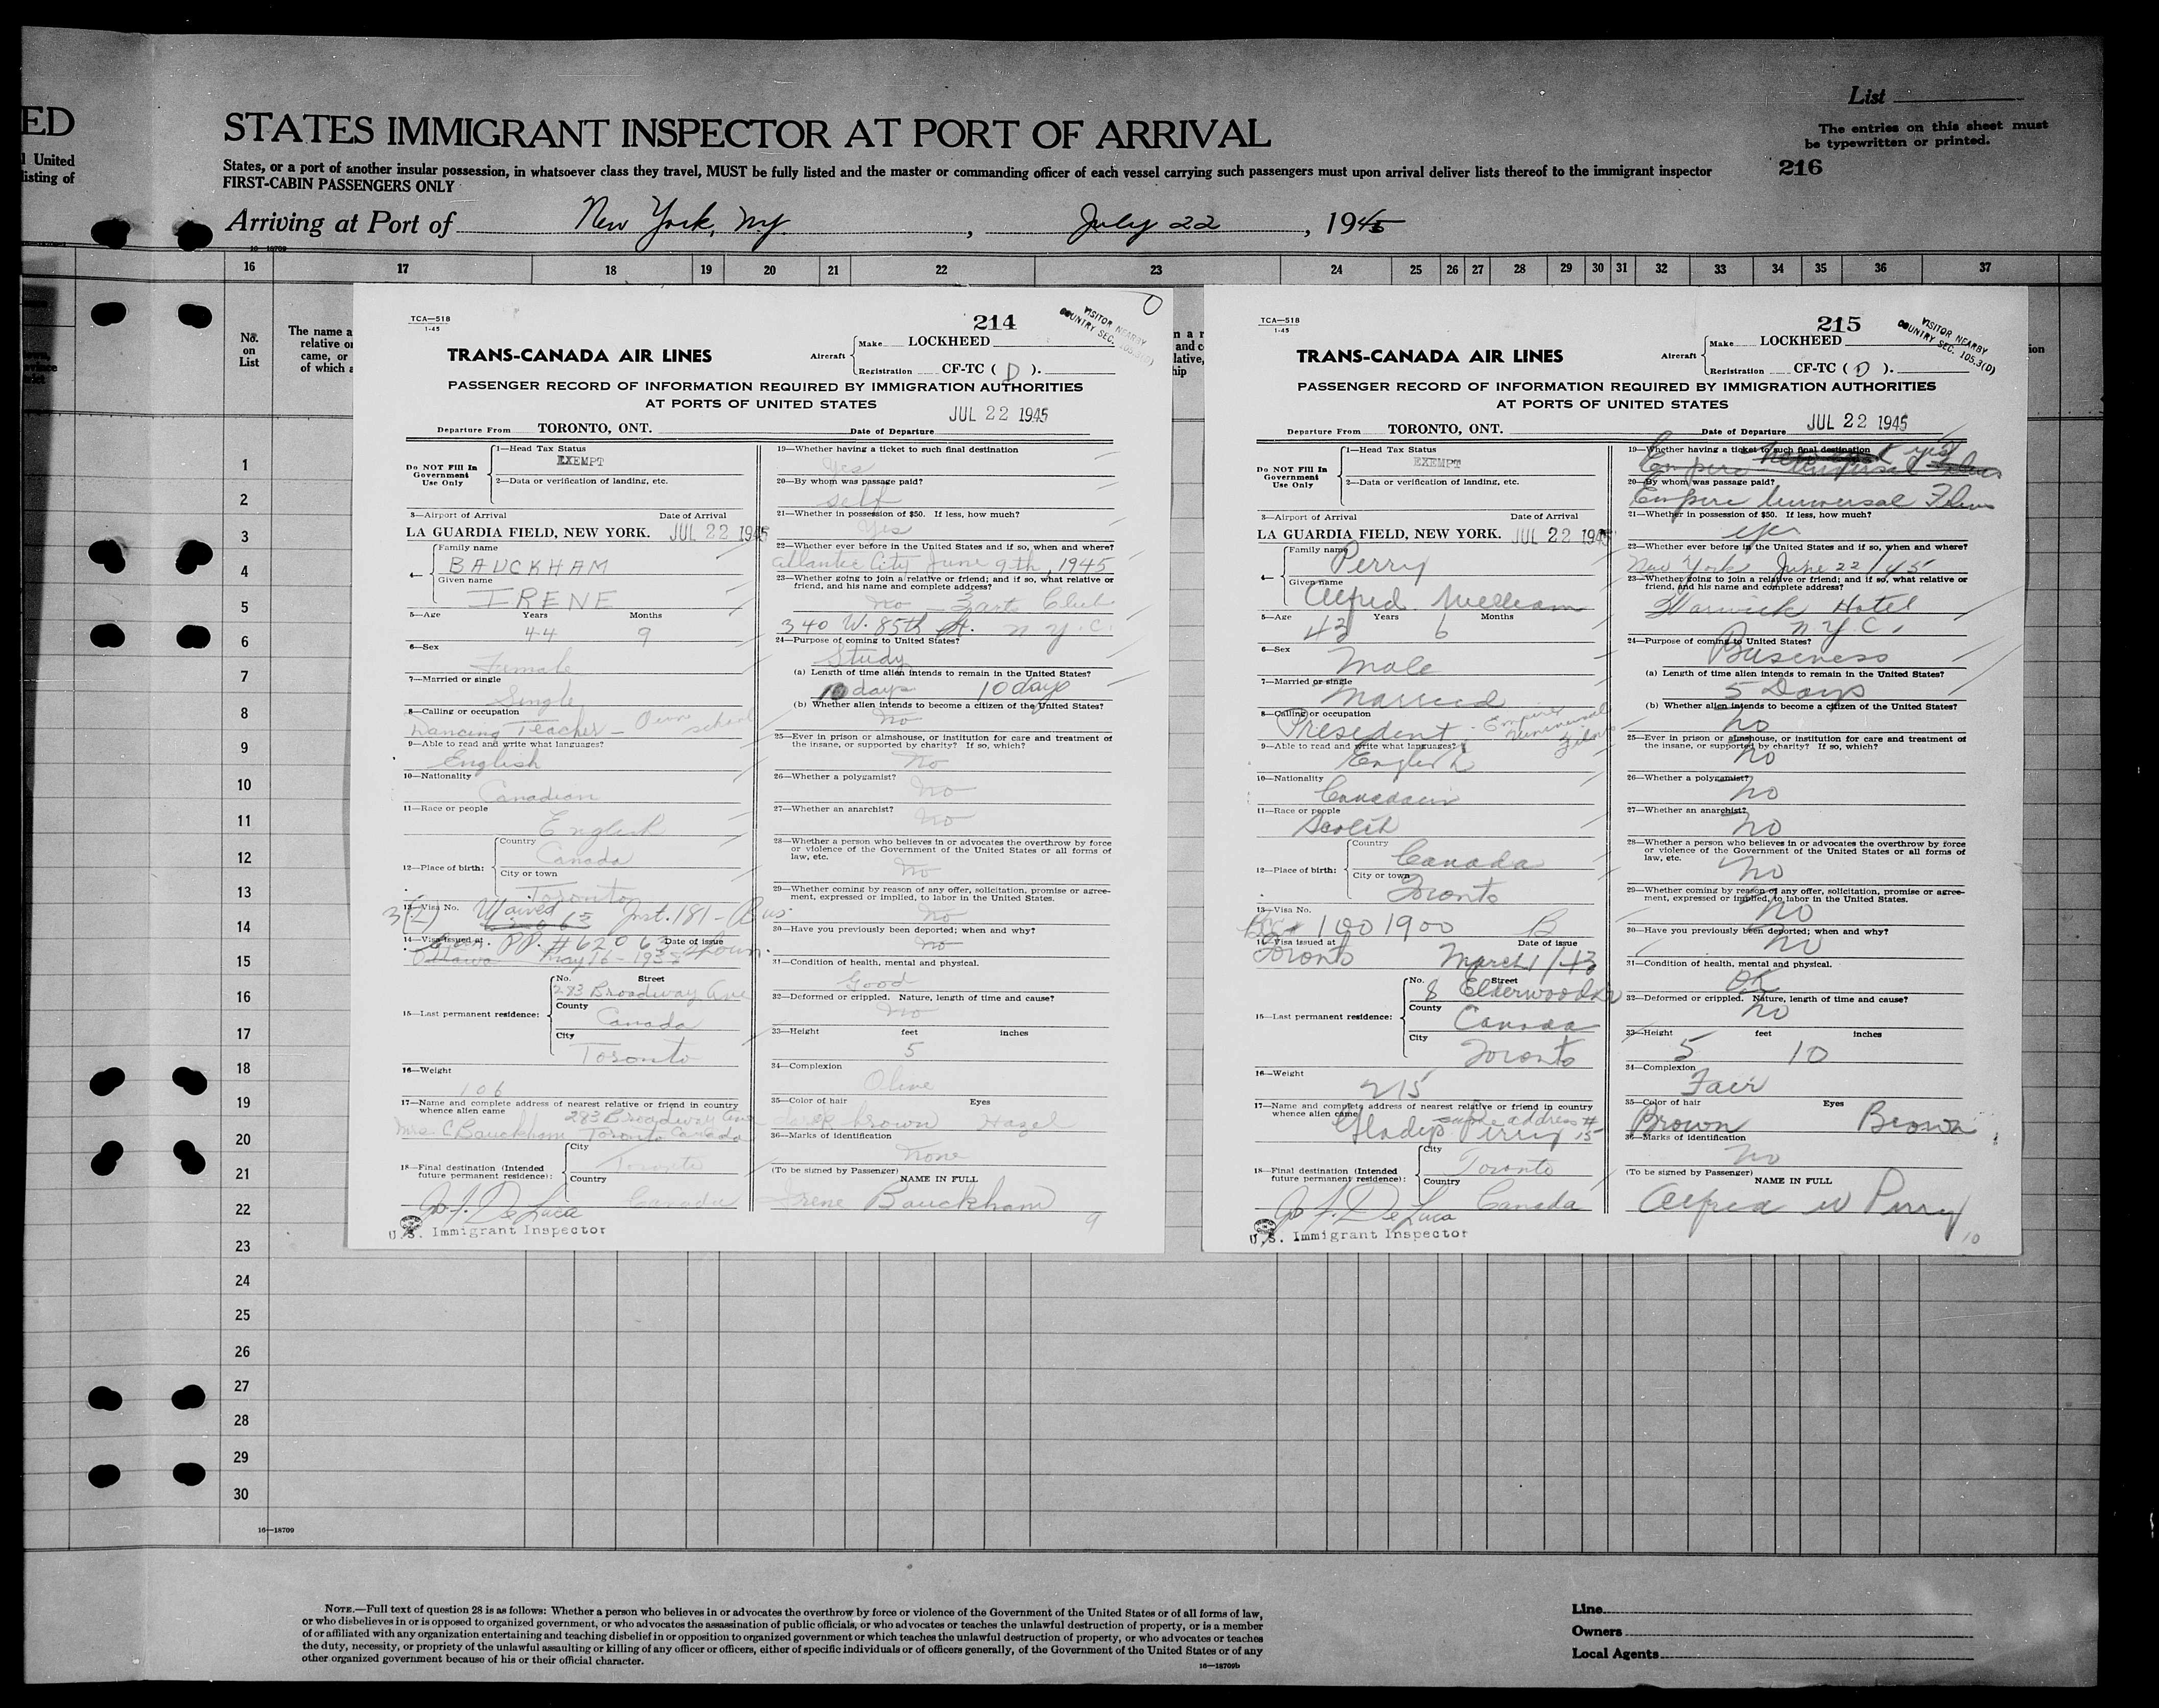 ED
l United
isting of
List
STATES IMMIGRANT INSPECTOR AT PORT OF ARRIVAL
The entries on this sheet must
be typewritten or printed.
States, or a port of another insular possession, in whatsoever class they travel, MUST be fully listed and the master or commanding officer of each vessel carrying such passengers must upon arrival deliver lists thereof to the immigrant inspector
FIRST-CABIN PASSENGERS ONLY
216
Arriving at Port of New York, N.Y. , July 22 , 1945
16-18709
16 17 18 19 20 21 22 23 24 25 26 27 28 29 30 31 32 33 34 35 36 37
No.
on
List
The name a
relative or
came, or
of which a
1
2
3
4
5
6
7
8
9
10
11
12
13
14
15
16
17
18
19
20
21
22
23
24
25
26
27
28
29
30
16-18709
TCA-518
1-45
214
VISITOR NEARBY
COUNTRY SEC. 105.3(D)
TRANS-CANADA AIR LINES
Aircraft Make LOCKHEED
Registration CF-TC ( D ).
PASSENGER RECORD OF INFORMATION REQUIRED BY IMMIGRATION AUTHORITIES
AT PORTS OF UNITED STATES
JUL 22 1945
Departure From TORONTO, ONT. Date of Departure
Do NOT Fill In
Government
Use Only
1-Head Tax Status
EXEMPT
2-Data or verification of landing, etc.
3-Airport of Arrival Date of Arrival
LA GUARDIA FIELD, NEW YORK. JUL 22 1945
4- Family name
BAUCKHAM
Given name
IRENE
5-Age Years Months
44 9
6-Sex
Female
7-Married or single
Single
8-Calling or occupation
Dancing Teacher - Own school
9-Able to read and write what languages?
English
10-Nationality
Canadian
11-Race or people
English
12-Place of birth: Country
Canada
City or town
Toronto
13-Visa No. Waived
3(2) Inst. 181-
14-Visa issued at Date of issue
PP. #62063 shown.
Ottawa May 16-1938
15-Last permanent residence: No. Street
283 Broadway Ave
County
Canada
City
Toronto
16-Weight
106
17-Name and complete address of nearest relative or friend in country
whence alien came 283 Broadway Ave
Mrs. C. Bauckham Toronto Canada
18-Final destination (Intended
future permanent residence): City
Toronto
Country
Canada
J. J. De Luca
U.S. Immigrant Inspector
19-Whether having a ticket to such final destination
Yes
20-By whom was passage paid?
Self
21-Whether in possession of $50. If less, how much?
Yes
22-Whether ever before in the United States and if so, when and where?
Atlantic City June 9th, 1945
23-Whether going to join a relative or friend; and if so, what relative or
friend, and his name and complete address?
No - 3 Arts Club
340 W. 85th St. N.Y.C.
24-Purpose of coming to United States?
Study
(a) Length of time alien intends to remain in the United States?
10 days 10 days
(b) Whether alien intends to become a citizen of the United States?
No
25-Ever in prison or almshouse, or institution for care and treatment of
the insane, or supported by charity? If so, which?
No
26-Whether a polygamist?
No
27-Whether an anarchist?
No
28-Whether a person who believes in or advocates the overthrow by force
or violence of the Government of the United States or all forms of
law, etc.
No
29-Whether coming by reason of any offer, solicitation, promise or agree-
ment, expressed or implied, to labor in the United States.
No
30-Have you previously been deported; when and why?
No
31-Condition of health, mental and physical.
Good
32-Deformed or crippled. Nature, length of time and cause?
No
33-Height feet inches
5
34-Complexion
Olive
35-Color of hair Eyes
Dark brown Hazel
36-Marks of identification
None
(To be signed by Passenger)
NAME IN FULL
Irene Bauckham
9
TCA-518
1-45
215
VISITOR NEARBY
COUNTRY SEC. 105.3(D)
TRANS-CANADA AIR LINES
Aircraft Make LOCKHEED
Registration CF-TC ( D ).
PASSENGER RECORD OF INFORMATION REQUIRED BY IMMIGRATION AUTHORITIES
AT PORTS OF UNITED STATES
JUL 22 1945
Departure From TORONTO, ONT. Date of Departure
Do NOT Fill In
Government
Use Only
1-Head Tax Status
EXEMPT
2-Data or verification of landing, etc.
3-Airport of Arrival Date of Arrival
LA GUARDIA FIELD, NEW YORK. JUL 22 1945
4- Family name
Perry
Given name
Alfred William
5-Age Years Months
43 6
6-Sex
Male
7-Married or single
Married
8-Calling or occupation
President - Empire Universal Films
9-Able to read and write what languages?
English
10-Nationality
Canadain
11-Race or people
Scotch
12-Place of birth: Country
Canada
City or town
Toronto
13-Visa No.
1001900 B
14-Visa issued at Date of issue
Toronto March 1/43
15-Last permanent residence: No. Street
8 Elderwood Dr
County
Canada
City
Toronto
16-Weight
215
17-Name and complete address of nearest relative or friend in country
whence alien came same address #15
Gladys Perry
18-Final destination (Intended
future permanent residence): City
Toronto
Country
Canada
J. J. De Luca
U.S. Immigrant Inspector
19-Whether having a ticket to such final destination
Empire yes
20-By whom was passage paid?
Empire Universal Films
21-Whether in possession of $50. If less, how much?
yes
22-Whether ever before in the United States and if so, when and where?
New York June 22/45
23-Whether going to join a relative or friend; and if so, what relative or
friend, and his name and complete address?
Warwick Hotel
N.Y.C.
24-Purpose of coming to United States?
Business
(a) Length of time alien intends to remain in the United States?
5 Days
(b) Whether alien intends to become a citizen of the United States?
No
25-Ever in prison or almshouse, or institution for care and treatment of
the insane, or supported by charity? If so, which?
No
26-Whether a polygamist?
No
27-Whether an anarchist?
No
28-Whether a person who believes in or advocates the overthrow by force
or violence of the Government of the United States or all forms of
law, etc.
No
29-Whether coming by reason of any offer, solicitation, promise or agree-
ment, expressed or implied, to labor in the United States.
No
30-Have you previously been deported; when and why?
No
31-Condition of health, mental and physical.
OK
32-Deformed or crippled. Nature, length of time and cause?
No
33-Height feet inches
5 10
34-Complexion
Fair
35-Color of hair Eyes
Brown Brown
36-Marks of identification
No
(To be signed by Passenger)
NAME IN FULL
Alfred W Perry
10
NOTE.—Full text of question 28 is as follows: Whether a person who believes in or advocates the overthrow by force or violence of the Government of the United States or of all forms of law,
or who disbelieves in or is opposed to organized government, or who advocates the assassination of public officials, or who advocates or teaches the unlawful destruction of property, or is a member
of or affiliated with any organization entertaining and teaching disbelief in or opposition to organized government or which teaches the unlawful destruction of property, or who advocates or teaches
the duty, necessity, or propriety of the unlawful assaulting or killing of any officer or officers, either of specific individuals or of officers generally, of the Government of the United States or of any
other organized government because of his or their official character.
16-18709b
Line
Owners
Local Agents